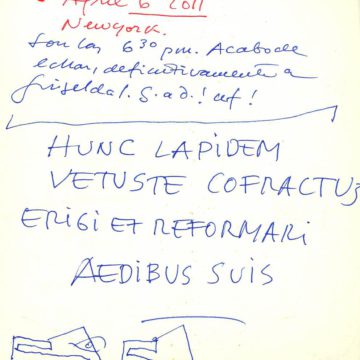 April 6 2011
Newyork.
Son las 6 30 pm. Acabo de
echar, definitivamente a
Griselda!. G. a d.! uf!
HUNC LAPIDEM
VETUSTE COFRACTUZ
ERIGI ET REFORMARI
AEDIBUS SUIS